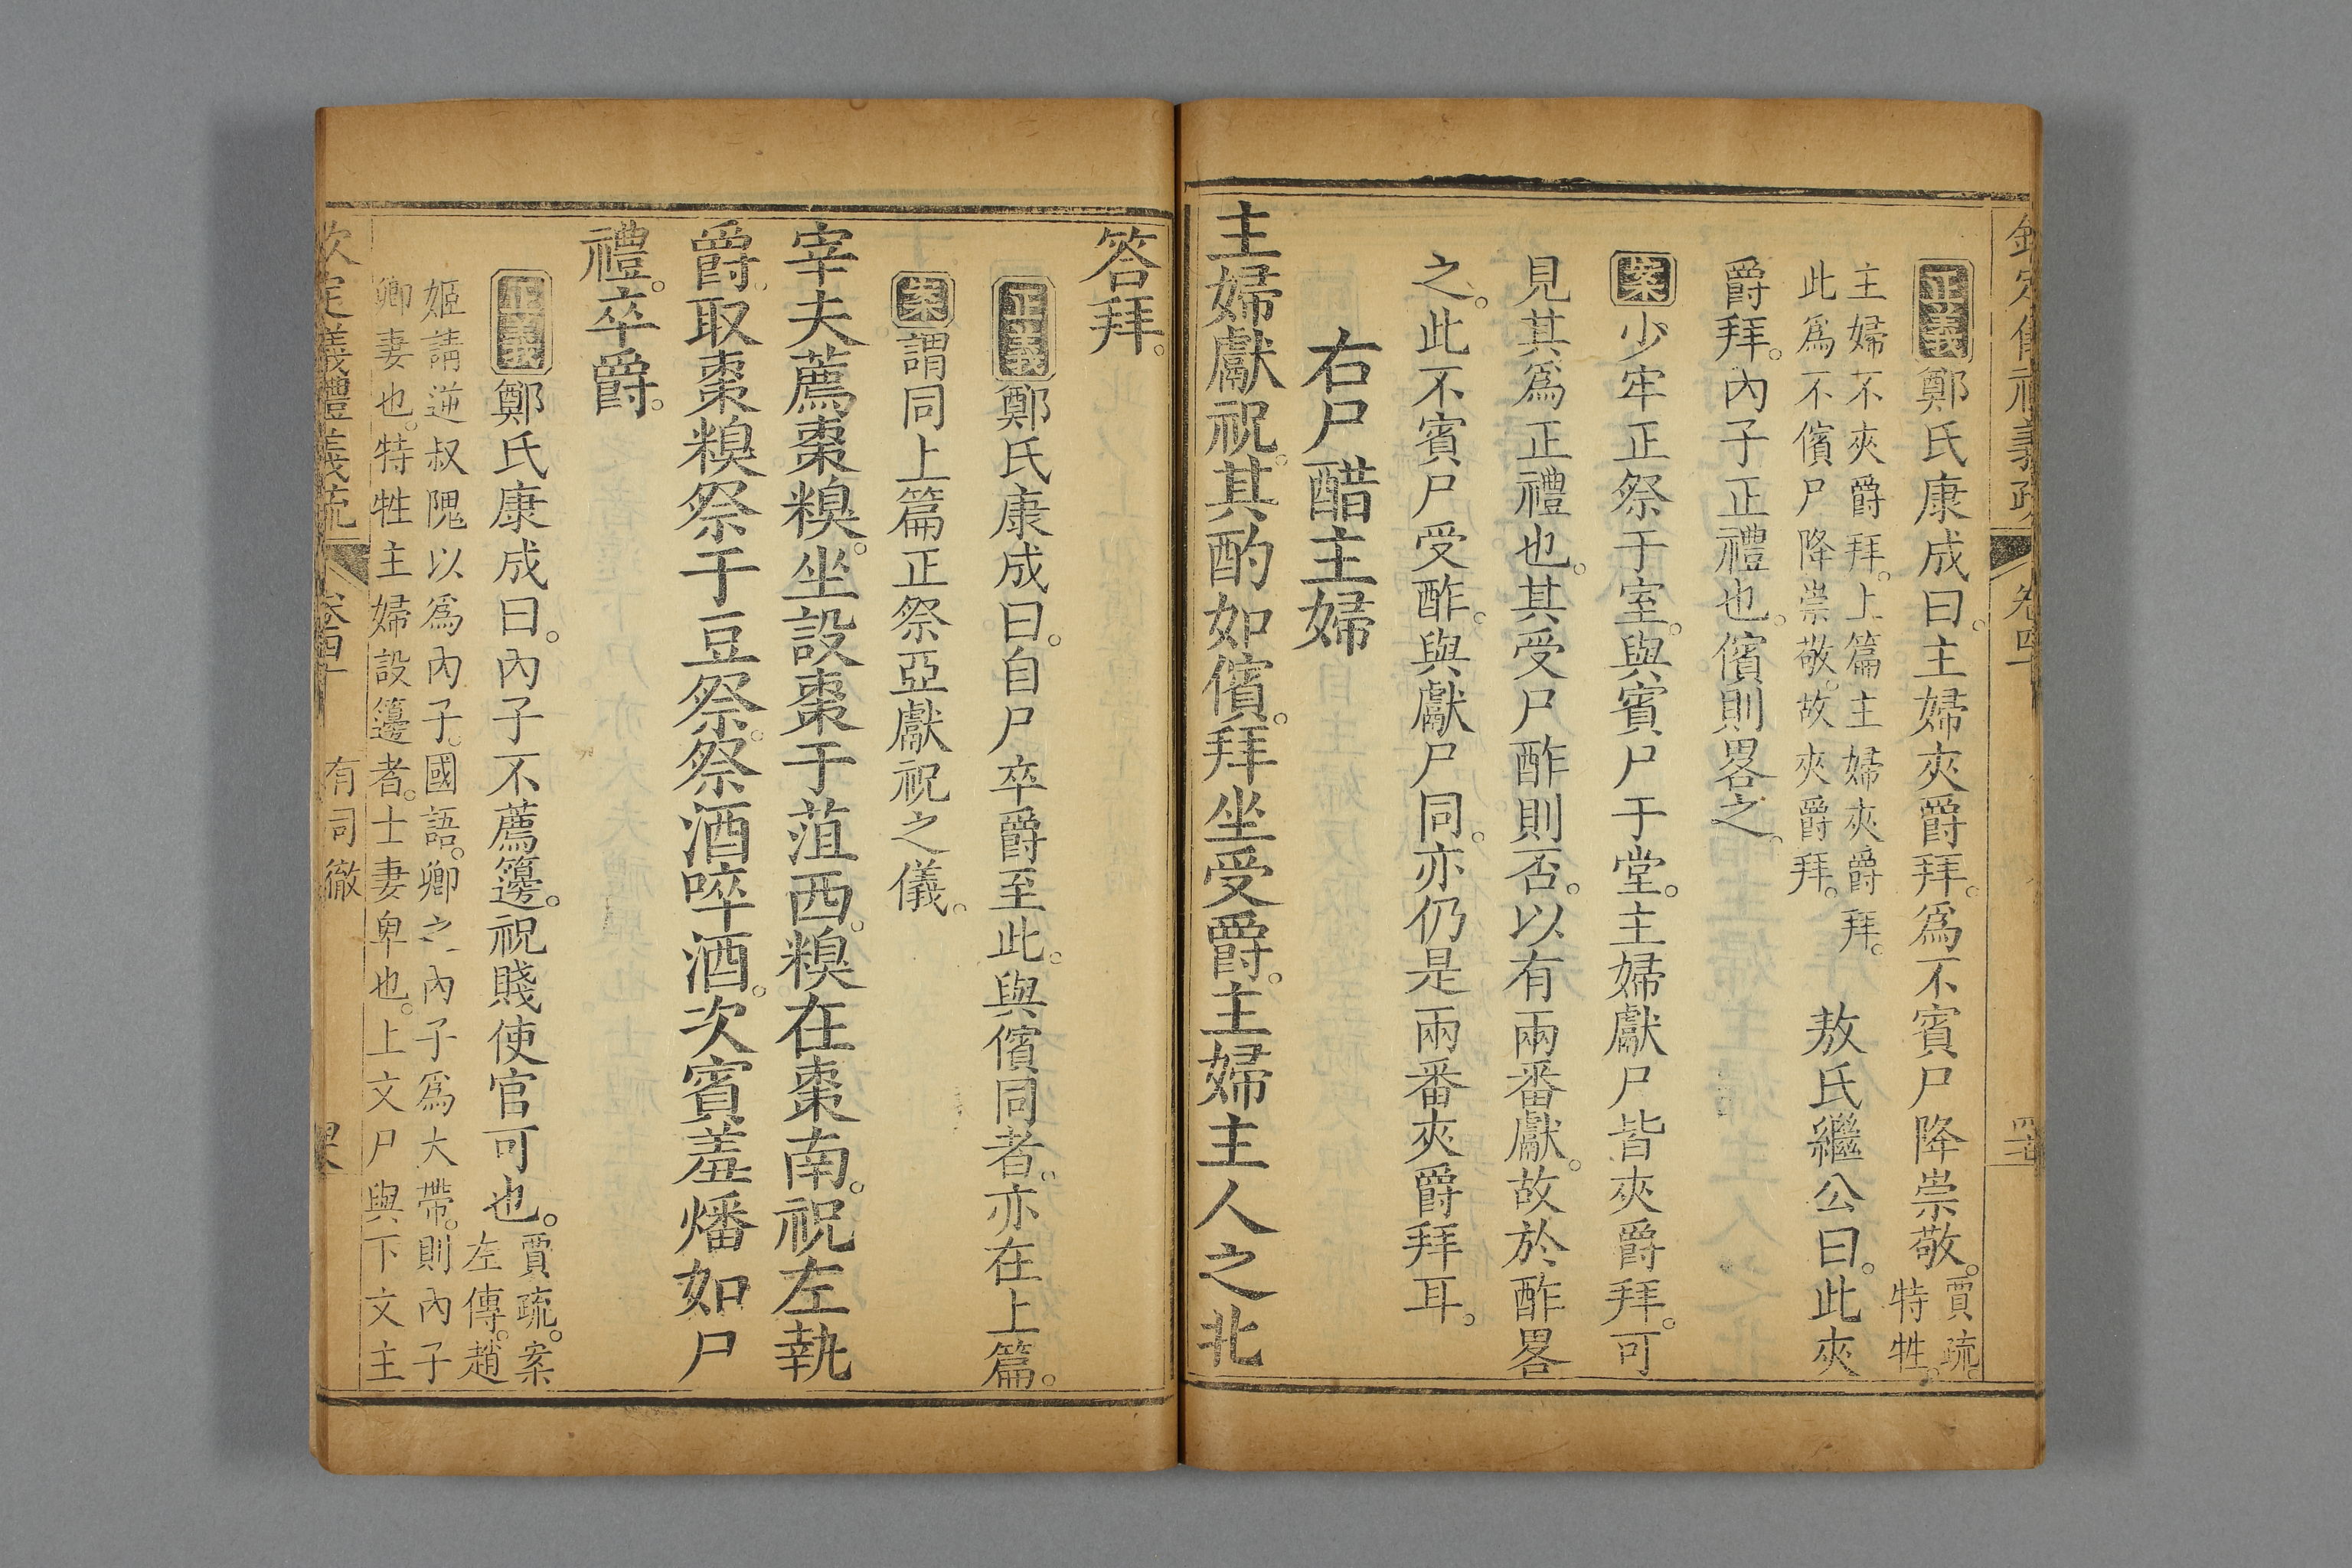 正義鄭氏康成曰。主婦夾爵拜。爲不賓尸降崇敬。賈疏。特牲。
主婦不夾爵拜。上篇主婦夾爵拜。
此爲不儐尸降崇敬。故夾爵拜。
敖氏繼公曰。此夾
爵拜。內子正禮也。儐則畧之。
案少牢正祭于室。與賓尸于堂。主婦獻尸皆夾爵拜。可
見其爲正禮也。其受尸酢則否。以有兩番獻。故於酢畧
之。此不賓尸受酢。與獻尸同。亦仍是兩番夾爵拜耳。
右尸醋主婦
主婦獻祝。其酌如儐。拜坐受爵。主婦主人之北
答拜。
正義鄭氏康成曰。自尸卒爵至此。與儐同者。亦在上篇。
案謂同上篇正祭亞獻祝之儀。
宰夫薦棗糗。坐設棗于菹西。糗在棗南。祝左執
爵。取棗糗祭于豆祭。祭酒啐酒。次賓羞燔如尸
禮。卒爵。
正義鄭氏康成曰。內子不薦籩。祝賤使官可也。賈疏。案
左傳。趙
姬請逆叔隗以爲內子。國語。卿之內子爲大帶。則內子
卿妻也。特牲主婦設籩者。士妻卑也。上文尸與下文主
欽定義禮義疏 卷四十 有司徹